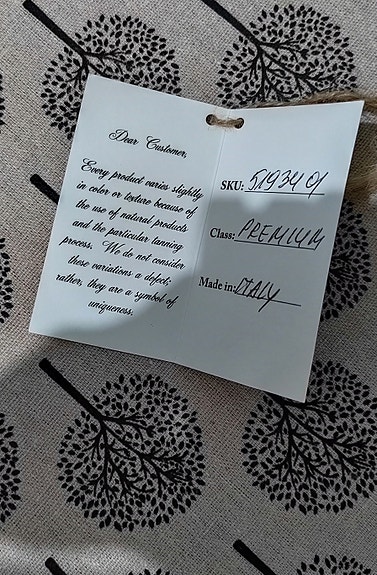 Dear Customer,
Every product varies slightly
in color or texture because of
the use of natural products
and the particular tanning
process. We do not consider
these variations a defect;
rather, they are a symbol of
uniqueness.
SKU: 51934 01
Class: PREMIUM
Made in: ITALY